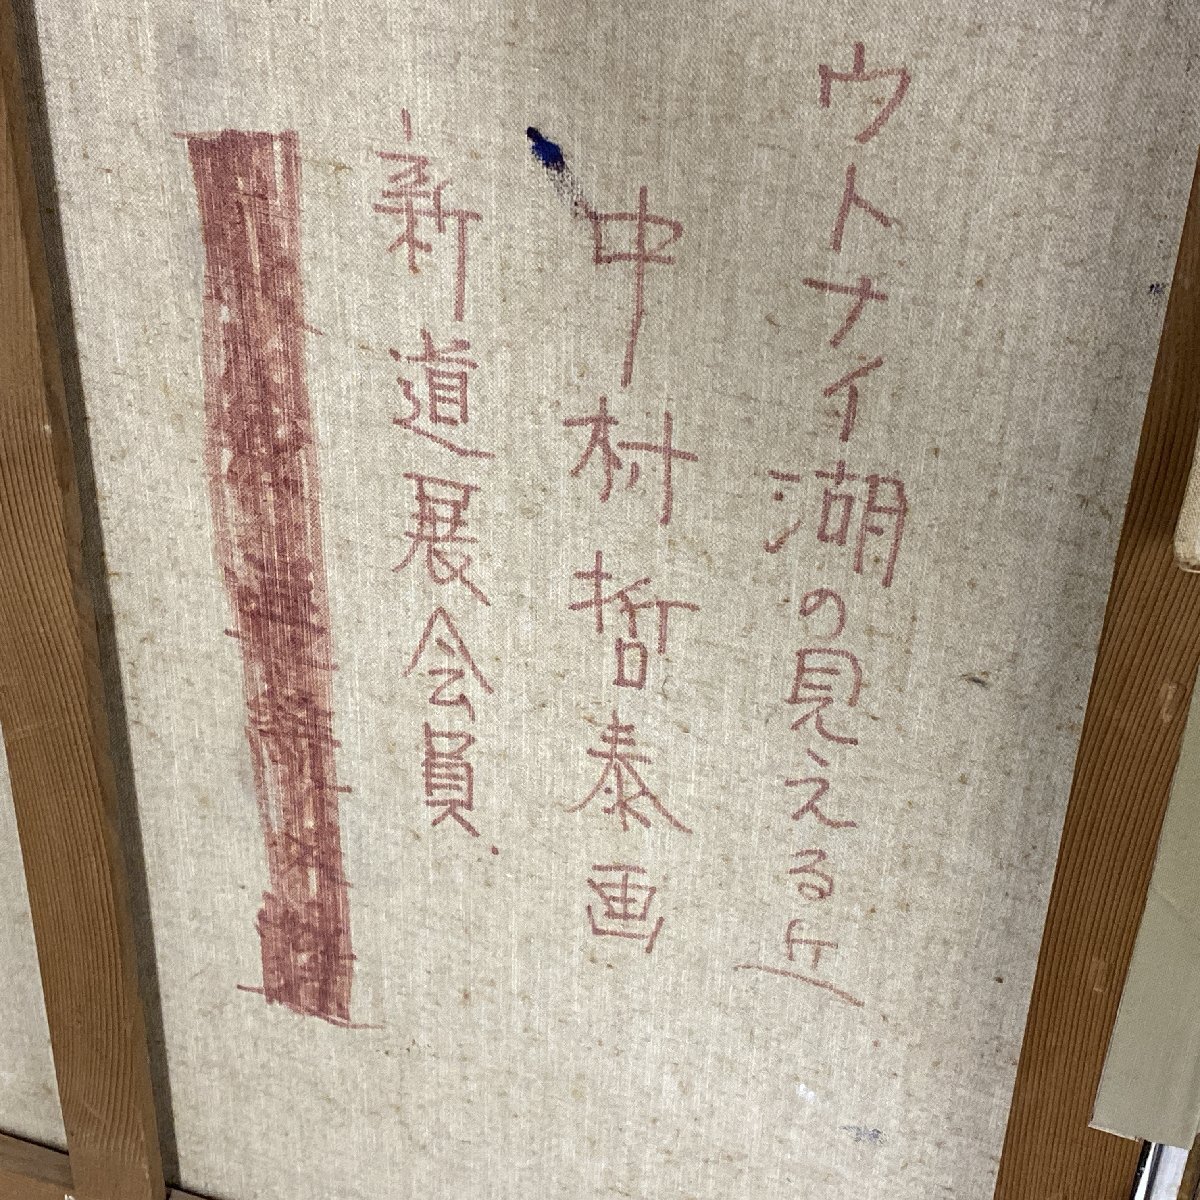 ウトナイ湖の見える丘
中村哲泰画
新道展会員.